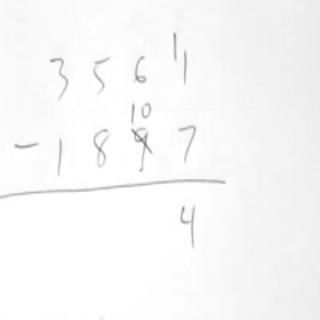 3 5 6 11
10
- 1 8 9 7
4